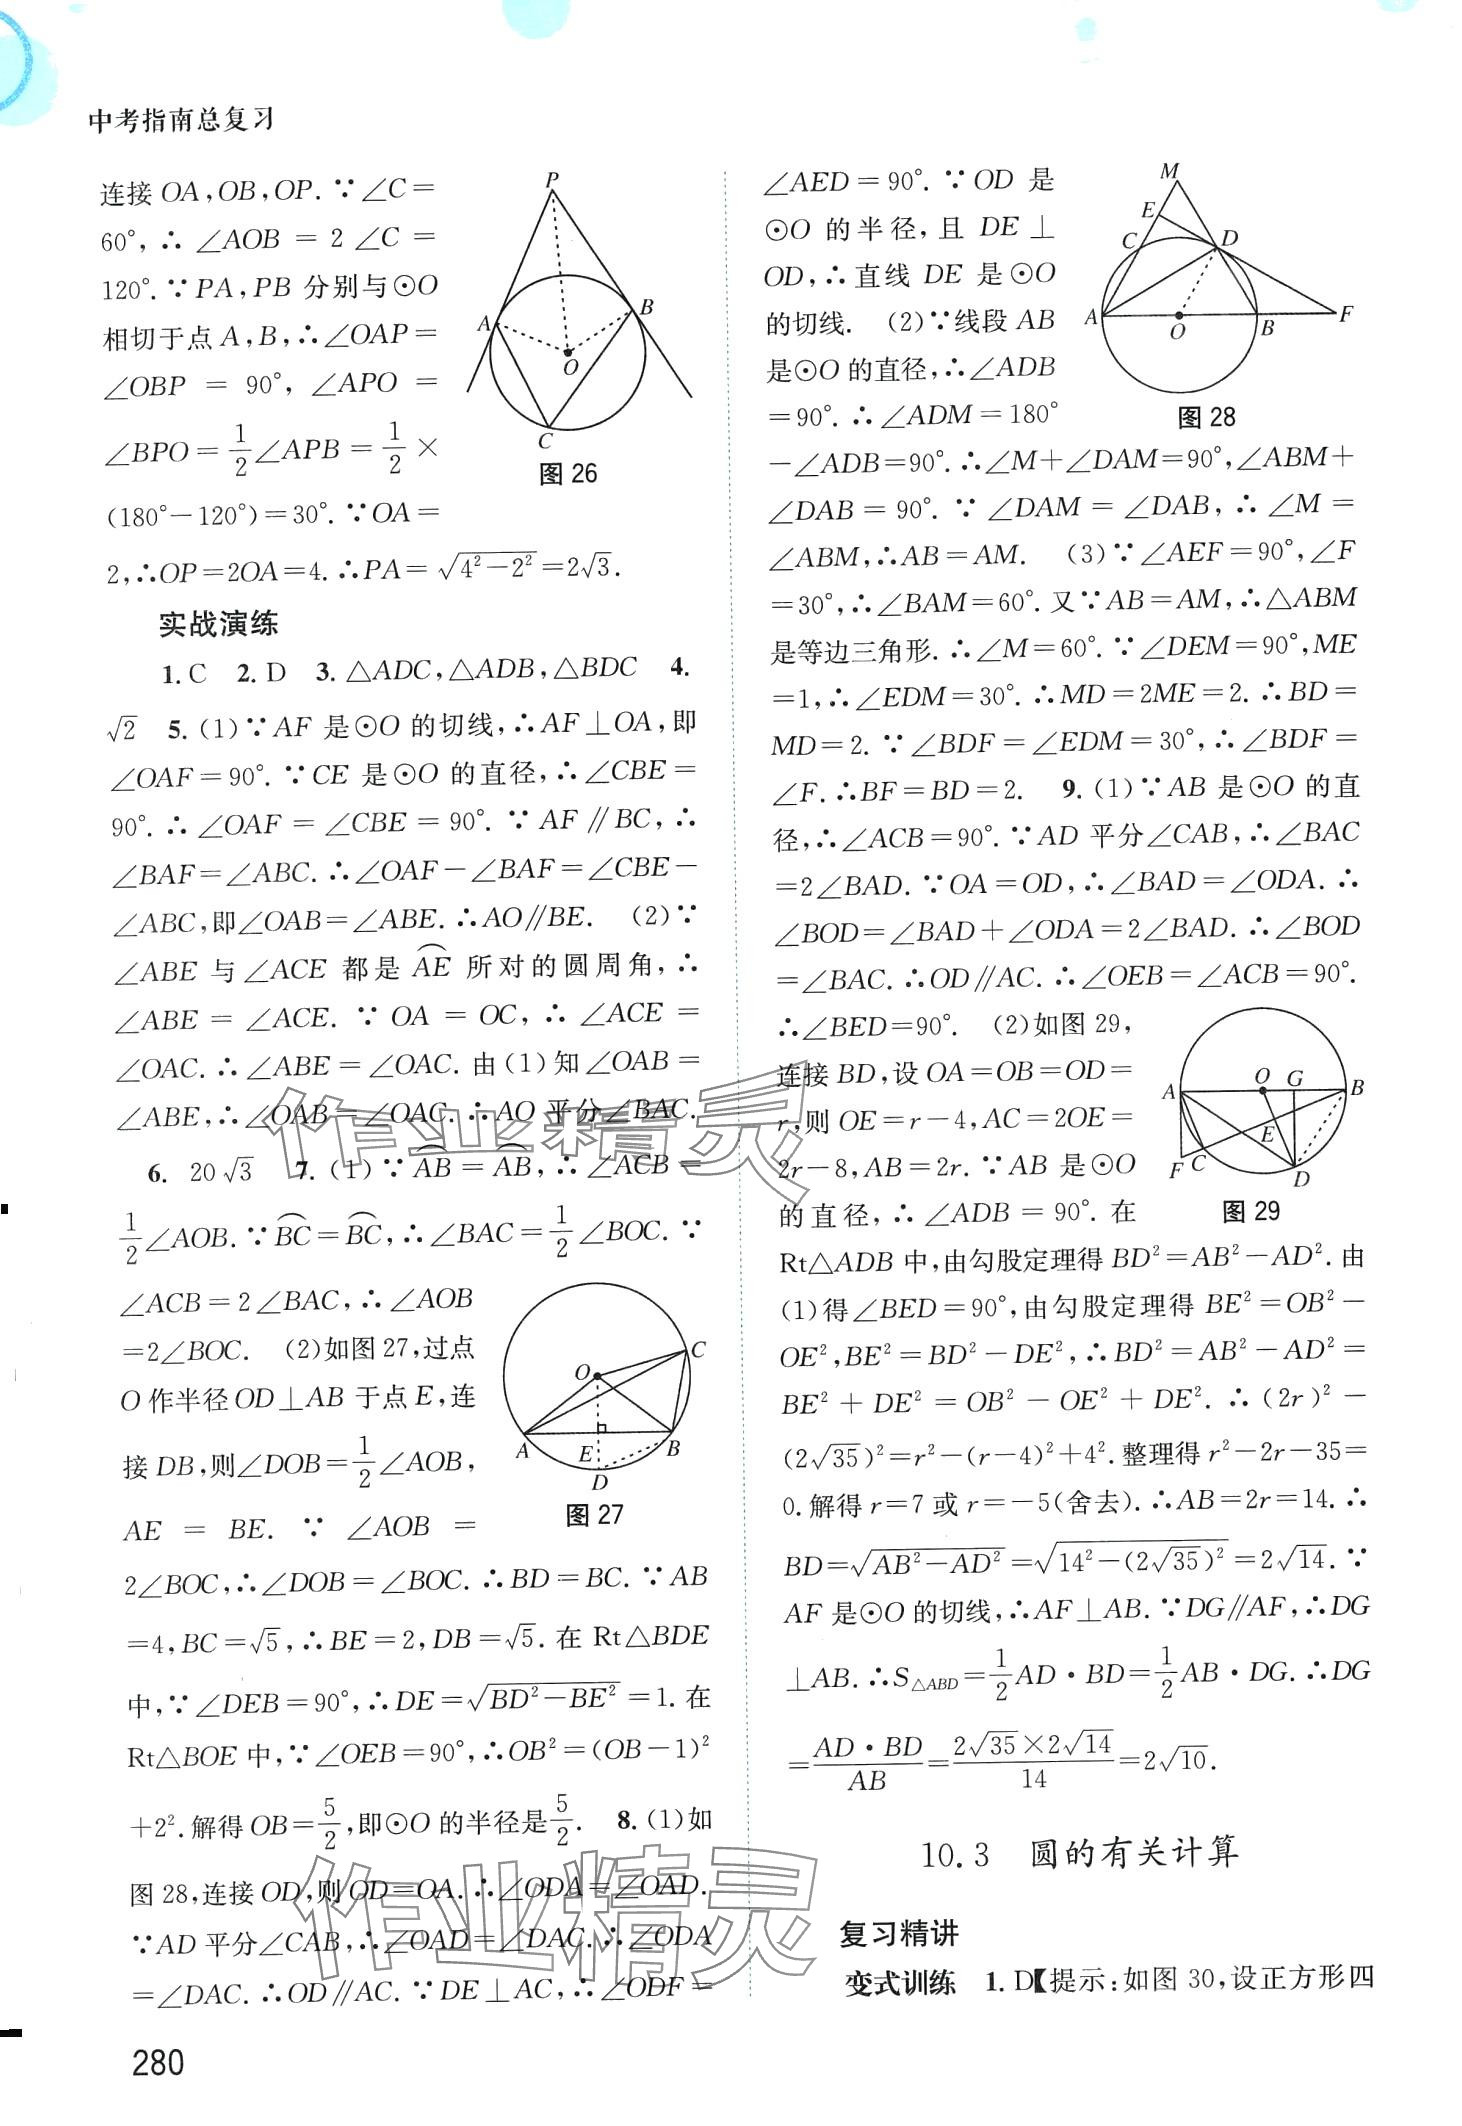 中考指南总复习
连接 OA，OB，OP. ∵∠C=
60°，∴ ∠AOB = 2∠C =
120°. ∵PA，PB 分别与⊙O
相切于点 A，B，∴∠OAP=
∠OBP = 90°，∠APO =
∠BPO=1/2∠APB=1/2×
(180°−120°)=30°. ∵OA=
2，∴OP=2OA=4. ∴PA=√(4²−2²)=2√3.
P
A
B
O
C
图 26
实战演练
1. C 2. D 3. △ADC，△ADB，△BDC 4.
√2 5. (1)∵AF 是⊙O 的切线，∴AF⊥OA，即
∠OAF=90°. ∵CE 是⊙O 的直径，∴∠CBE=
90°. ∴ ∠OAF = ∠CBE = 90°. ∵ AF∥BC，∴
∠BAF=∠ABC. ∴∠OAF−∠BAF=∠CBE−
∠ABC，即∠OAB=∠ABE. ∴AO∥BE. (2)∵
∠ABE 与 ∠ACE 都是 AE⌒ 所对的圆周角，∴
∠ABE = ∠ACE. ∵ OA = OC，∴ ∠ACE =
∠OAC. ∴ ∠ABE = ∠OAC. 由(1)知∠OAB =
∠ABE，∴∠OAB=∠OAC. ∴AO 平分∠BAC.
6. 20√3 7. (1)∵AB⌒=AB⌒，∴∠ACB=
1/2∠AOB. ∵BC⌒=BC⌒，∴∠BAC=1/2∠BOC. ∵
∠ACB=2∠BAC，∴∠AOB
=2∠BOC. (2)如图 27，过点
O 作半径 OD⊥AB 于点 E，连
接 DB，则∠DOB=1/2∠AOB，
AE = BE. ∵ ∠AOB =
2∠BOC，∴∠DOB=∠BOC. ∴BD=BC. ∵AB
=4，BC=√5，∴BE=2，DB=√5. 在 Rt△BDE
中，∵∠DEB=90°，∴DE=√(BD²−BE²)=1. 在
Rt△BOE 中，∵∠OEB=90°，∴OB²=(OB−1)²
+2². 解得 OB=5/2，即⊙O 的半径是5/2. 8. (1)如
图 28，连接 OD，则 OD=OA. ∴∠ODA=∠OAD.
∵AD 平分∠CAB，∴∠OAD=∠DAC. ∴∠ODA
=∠DAC. ∴OD∥AC. ∵DE⊥AC，∴∠ODF=
O
C
A
E
B
D
图 27
280
∠AED=90°. ∵OD 是
⊙O 的半径，且 DE⊥
OD，∴直线 DE 是⊙O
的切线. (2)∵线段 AB
是⊙O 的直径，∴∠ADB
=90°. ∴∠ADM=180°
−∠ADB=90°. ∴∠M+∠DAM=90°，∠ABM+
∠DAB = 90°. ∵ ∠DAM = ∠DAB，∴ ∠M =
∠ABM，∴AB=AM. (3)∵∠AEF=90°，∠F
=30°，∴∠BAM=60°. 又∵AB=AM，∴△ABM
是等边三角形. ∴∠M=60°. ∵∠DEM=90°，ME
=1，∴∠EDM=30°. ∴MD=2ME=2. ∴BD=
MD=2. ∵∠BDF=∠EDM=30°，∴∠BDF=
∠F. ∴BF=BD=2. 9. (1)∵AB 是⊙O 的直
径，∴∠ACB=90°. ∵AD 平分∠CAB，∴∠BAC
=2∠BAD. ∵OA=OD，∴∠BAD=∠ODA. ∴
∠BOD=∠BAD+∠ODA=2∠BAD. ∴∠BOD
=∠BAC. ∴OD∥AC. ∴∠OEB=∠ACB=90°.
∴∠BED=90°. (2)如图 29，
连接 BD，设 OA=OB=OD=
r，则 OE=r−4，AC=2OE=
2r−8，AB=2r. ∵AB 是⊙O
的直径，∴∠ADB=90°. 在
Rt△ADB 中，由勾股定理得 BD²=AB²−AD². 由
(1)得∠BED=90°，由勾股定理得 BE²=OB²−
OE²，BE²=BD²−DE²，∴BD²=AB²−AD²=
BE² + DE² = OB² − OE² + DE². ∴ (2r)² −
(2√35)²=r²−(r−4)²+4². 整理得 r²−2r−35=
0. 解得 r=7 或 r=−5(舍去). ∴AB=2r=14. ∴
BD=√(AB²−AD²)=√(14²−(2√35)²)=2√14. ∵
AF 是⊙O 的切线，∴AF⊥AB. ∵DG∥AF，∴DG
⊥AB. ∴S△ABD=1/2AD·BD=1/2AB·DG. ∴DG
=AD·BD/AB=2√35×2√14/14=2√10.
M
E
C
D
A
O
B
F
图 28
A
O
G
B
E
F
C
D
图 29
10.3 圆的有关计算
复习精讲
变式训练 1. D【提示：如图 30，设正方形四
作业精灵
作业精灵